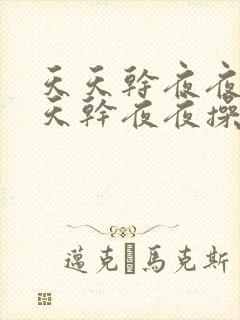 天天幹夜夜
天幹夜夜操
邁克 馬克斯